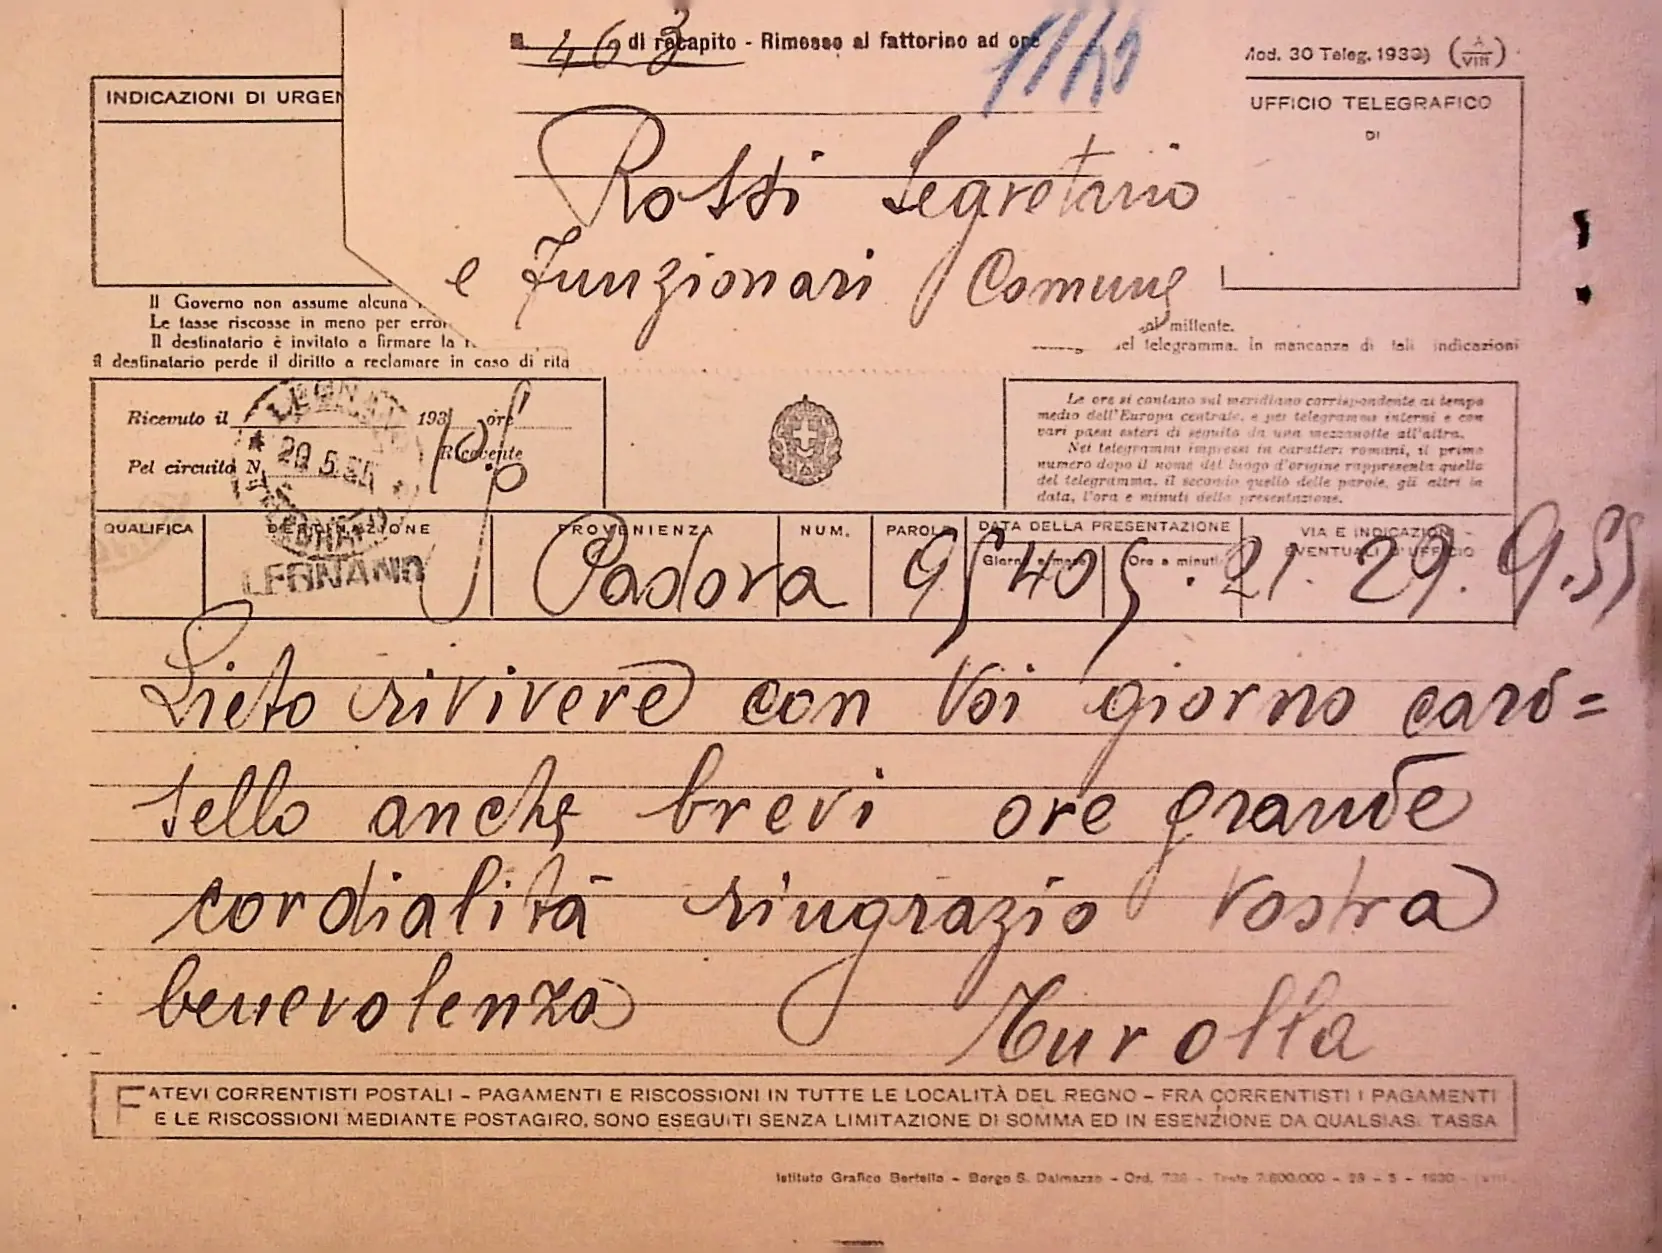 463 di recapito - Rimesso al fattorino ad ore 1140
Mod. 30 Teleg. 1930) (A VIII)
INDICAZIONI DI URGEN
UFFICIO TELEGRAFICO
DI
Rossi Segretario
e funzionari Comune
Il Governo non assume alcuna
Le tasse riscosse in meno per error
Il destinatario è invitato a firmare la
Il destinatario perde il diritto a reclamare in caso di rita
mittente.
del telegramma. In mancanza di tali indicazioni
Ricevuto il 193 ore
Pel circuito N. Ricevente
LEGNANO
29 5 31
Le ore si contano sul meridiano corrispondente al tempo
medio dell'Europa centrale, e pei telegrammi interni e con
vari paesi esteri di seguito da una mezzanotte all'altra.
Nei telegrammi impressi in caratteri romani, il primo
numero dopo il nome del luogo d'origine rappresenta quello
del telegramma, il secondo quello delle parole, gli altri la
data, l'ora e minuti della presentazione.
QUALIFICA DESTINAZIONE PROVENIENZA NUM. PAROLE DATA DELLA PRESENTAZIONE VIA E INDICAZIONI
Giorno e mese Ore e minuti EVENTUALI D'UFFICIO
LEGNANO Padova 21 29. 9.55
Lieto rivivere con Voi giorno caro=
sello anche brevi ore grande
cordialità ringrazio Vostra
benevolenza Turolla
FATEVI CORRENTISTI POSTALI - PAGAMENTI E RISCOSSIONI IN TUTTE LE LOCALITÀ DEL REGNO - FRA CORRENTISTI I PAGAMENTI
E LE RISCOSSIONI MEDIANTE POSTAGIRO, SONO ESEGUITI SENZA LIMITAZIONE DI SOMMA ED IN ESENZIONE DA QUALSIASI TASSA
Istituto Grafico Bertello - Borgo S. Dalmazzo - Ord. 736 - Teste 7.600.000 - 29 - 5 - 1930 -